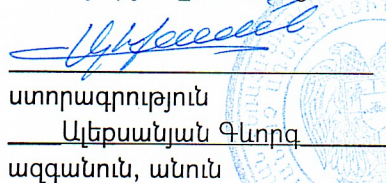 ստորագրություն
Ալեքսանյան Գևորգ
ազգանուն, անուն